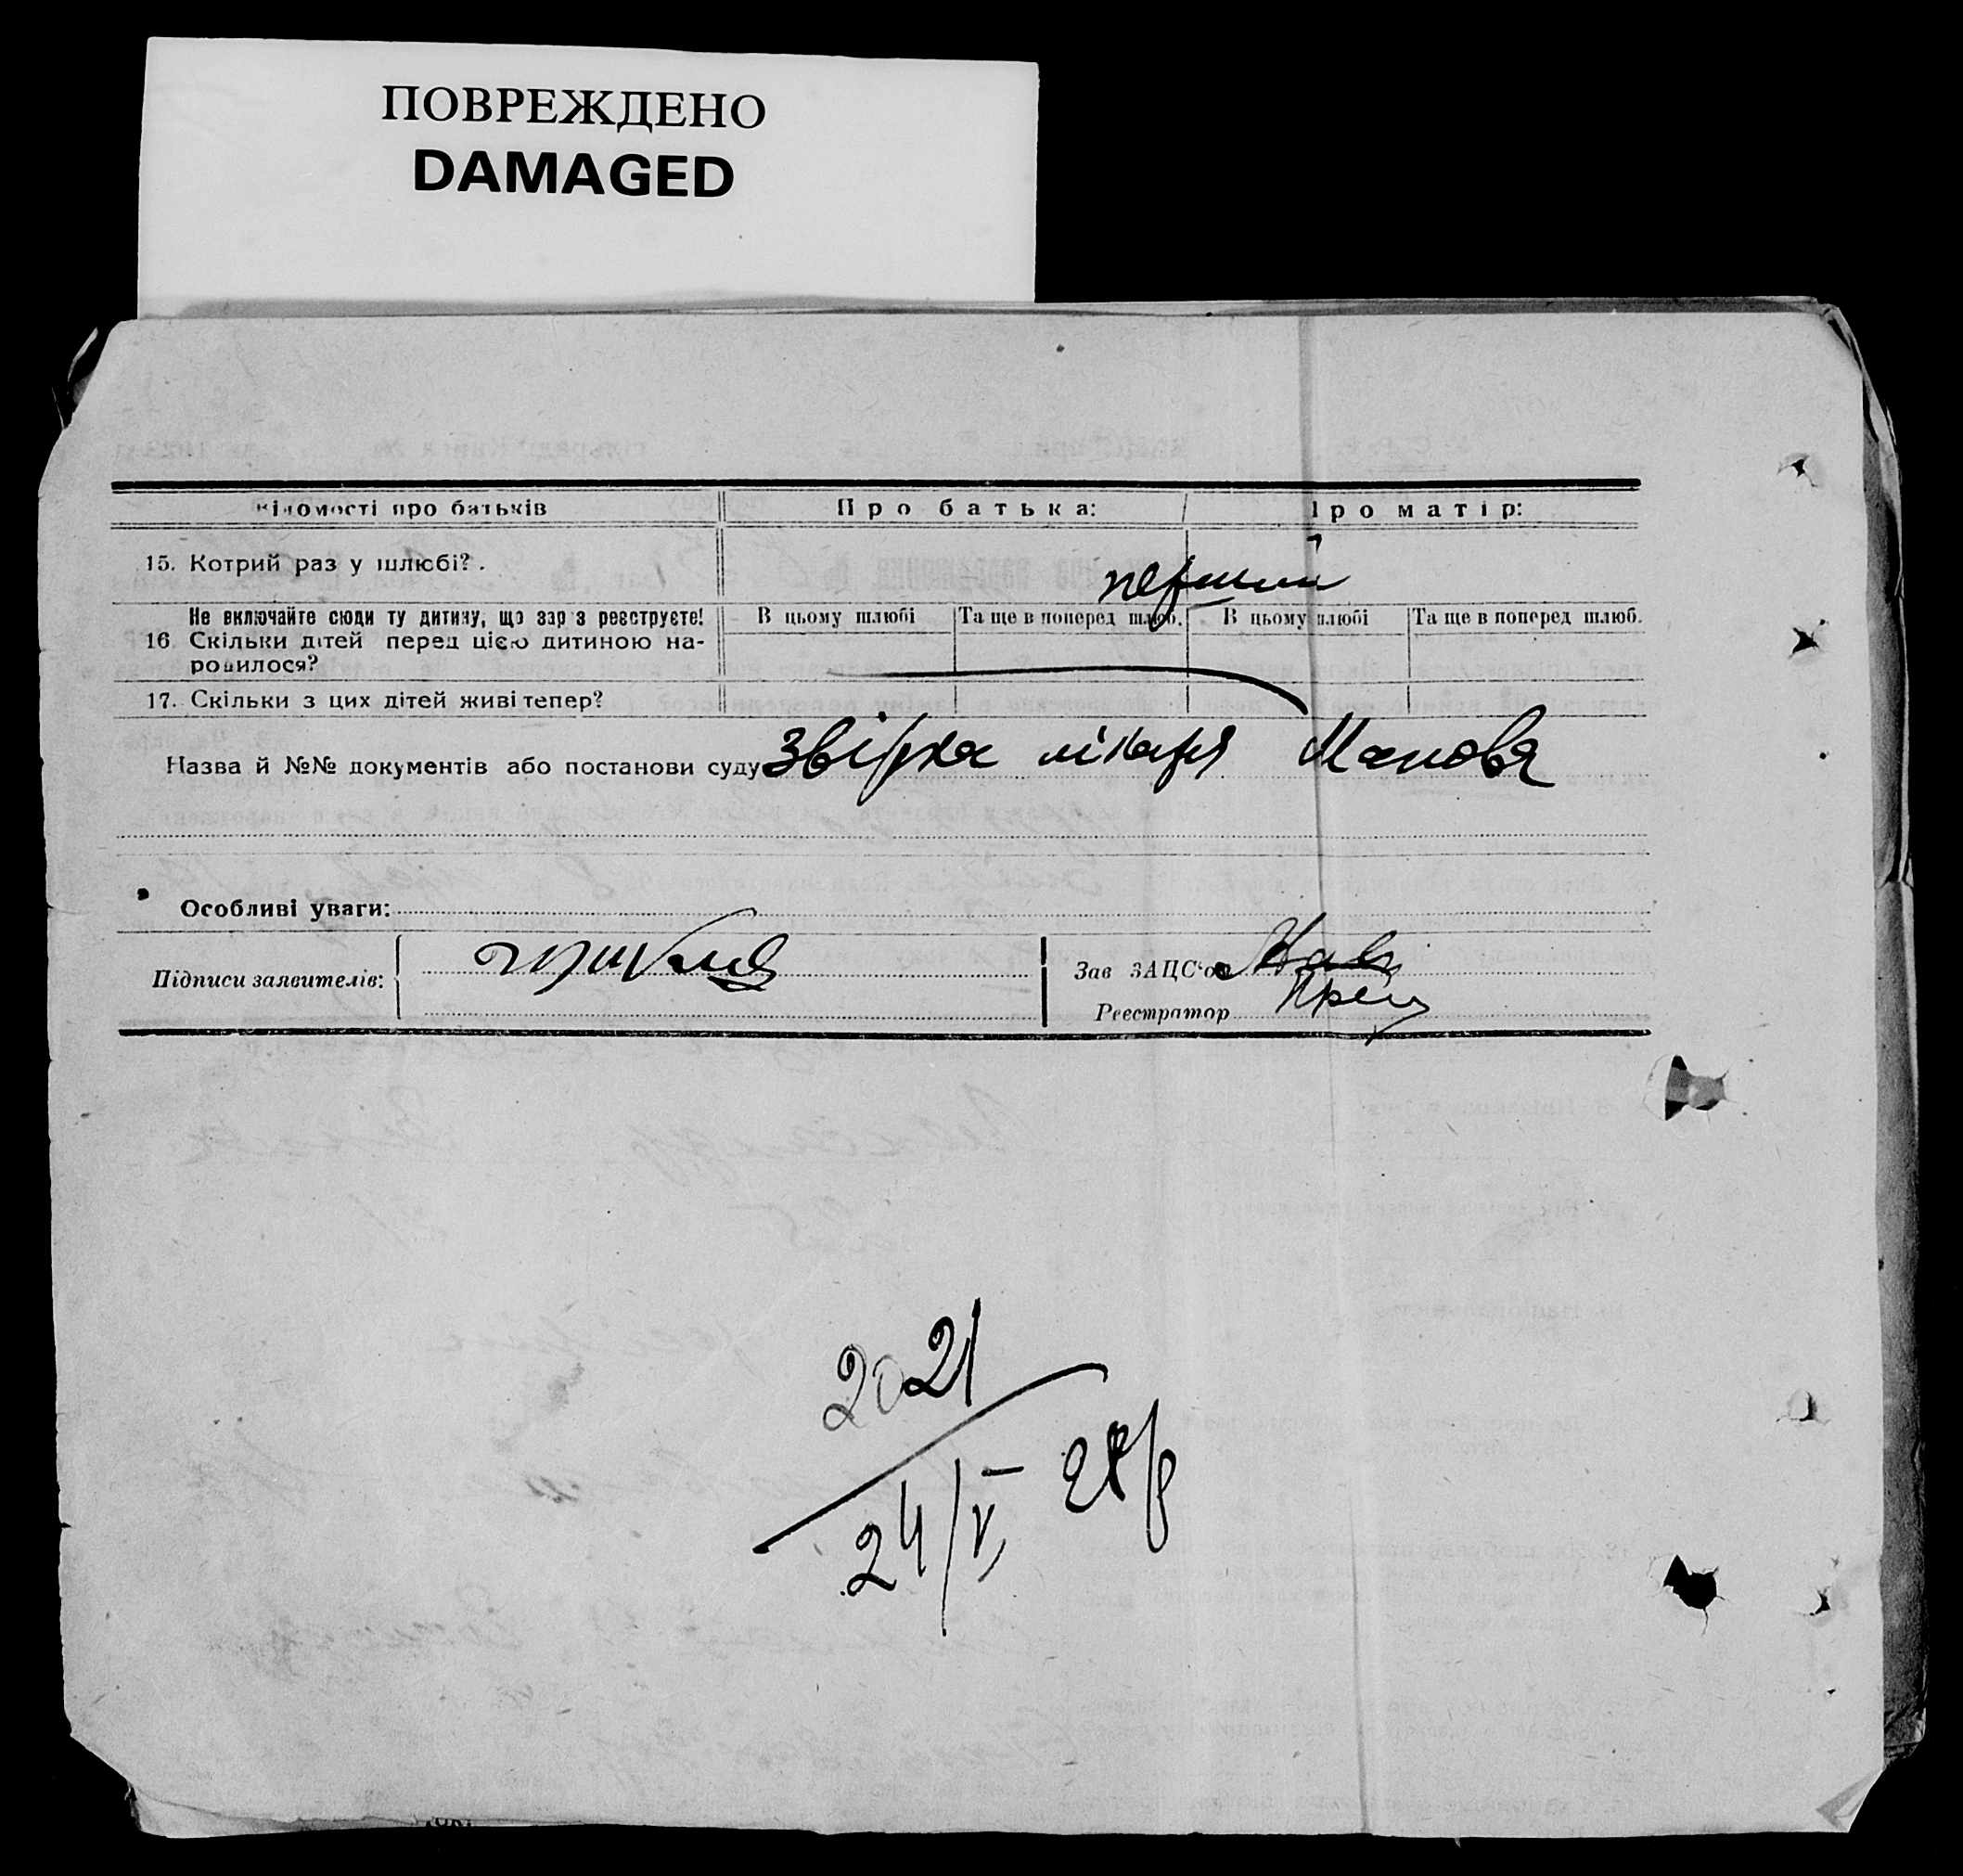 ПОВРЕЖДЕНО
DAMAGED
Відомості про батьків Про батька: Про матір:
15. Котрий раз у шлюбі?. перший
Не включайте сюди ту дитину, що зараз реєструєте! В цьому шлюбі Та ще в поперед шлюб. В цьому шлюбі Та ще в поперед шлюб.
16 Скільки дітей перед цією дитиною на-
родилося?
17. Скільки з цих дітей живі тепер?
Назва й №№ документів або постанови суду звірка лікаря
Особливі уваги:
Підписи заявителів: Зав ЗАЦС'ом
Реєстратор
2021
24/V 28 р